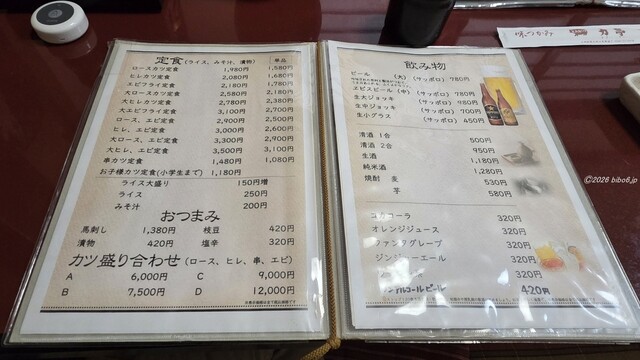 定食(ライス、みそ汁、漬物) 単品
ロースカツ定食 1,980円 1,580円
ヒレカツ定食 2,080円 1,680円
エビフライ定食 2,180円 1,780円
大ロースカツ定食 2,580円 2,180円
大ヒレカツ定食 2,780円 2,380円
大エビフライ定食 3,100円 2,700円
ロース、エビ定食 2,900円 2,500円
ヒレ、エビ定食 3,000円 2,600円
大ロース、エビ定食 3,300円 2,900円
大ヒレ、エビ定食 3,500円 3,100円
串カツ定食 1,480円 1,080円
お子様カツ定食(小学生まで) 1,180円
ライス大盛り 150円増
ライス 250円
みそ汁 200円
おつまみ
馬刺し 1,380円 枝豆 420円
漬物 420円 塩辛 320円
カツ盛り合わせ (ロース、ヒレ、串、エビ)
A 6,000円 C 9,000円
B 7,500円 D 12,000円
飲み物
ビール (大) (サッポロ) 780円
ヱビスビール (中) (サッポロ) 780円
生大ジョッキ (サッポロ) 980円
生中ジョッキ (サッポロ) 700円
生小グラス (サッポロ) 450円
清酒 1合 500円
清酒 2合 950円
生酒 1,180円
純米酒 1,280円
焼酎 麦 530円
芋 580円
コカコーラ 320円
オレンジジュース 320円
ファンタグレープ 320円
ジンジャーエール 320円
320円
ノンアルコールビール 420円
味のかみ
©2026 bibo6.jp